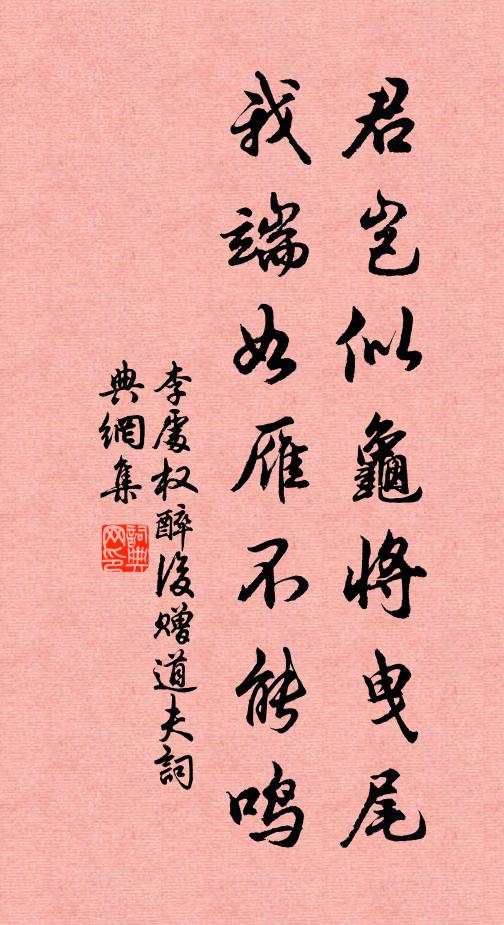 君岂似龜將曳尾
我端如雁不能鸣
李處权醉後赠道夫詞
典網集
詞典
网印